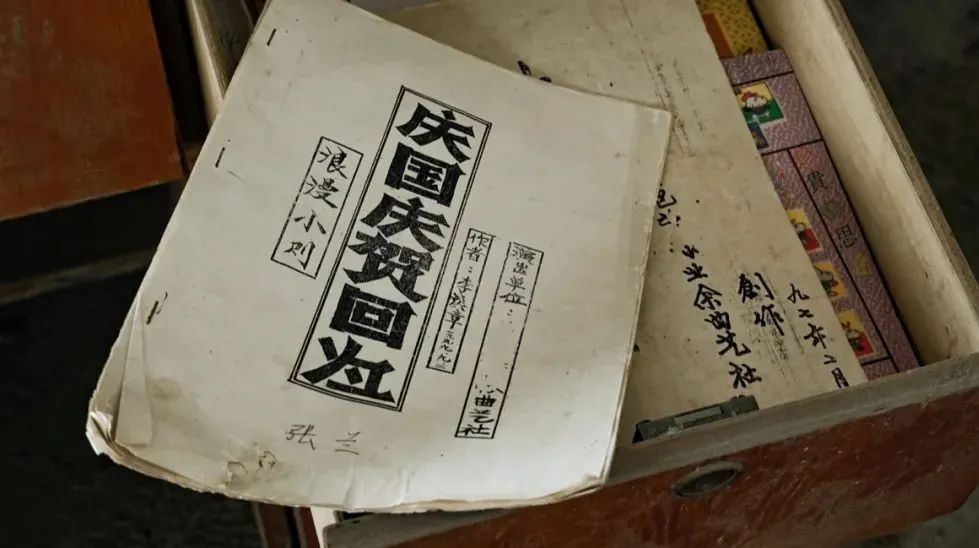 庆国庆贺回归
浪漫小则
作者：李
演出单位：
心曲艺社
张兰
九七年二月
創作
业余曲艺社
貴 思